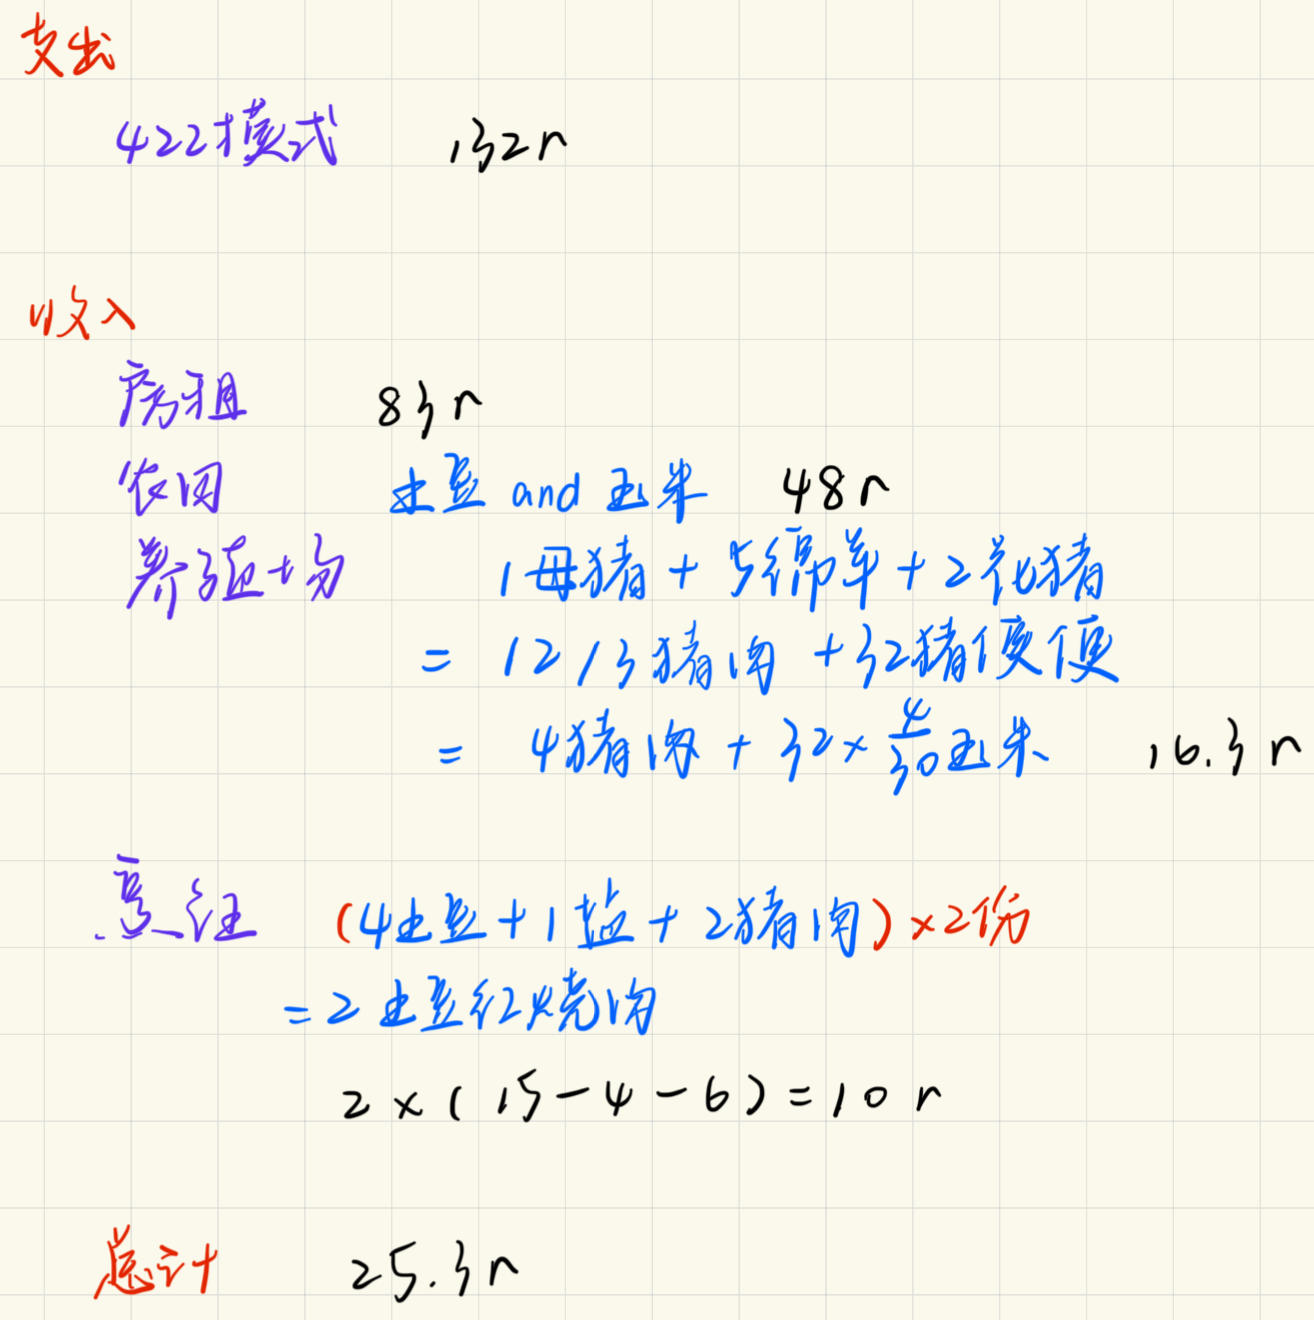 支出
422模式 132r
收入
房租 83r
农田 土豆 and 玉米 48r
养殖场 1母猪 + 5绵羊 + 2花猪
= 12/3猪肉 + 32猪便便
= 4猪肉 + 32×4/30玉米 16.3r
烹饪 (4土豆+1盐+2猪肉)×2份
=2土豆红烧肉
2×(15-4-6)=10r
总计 25.3r